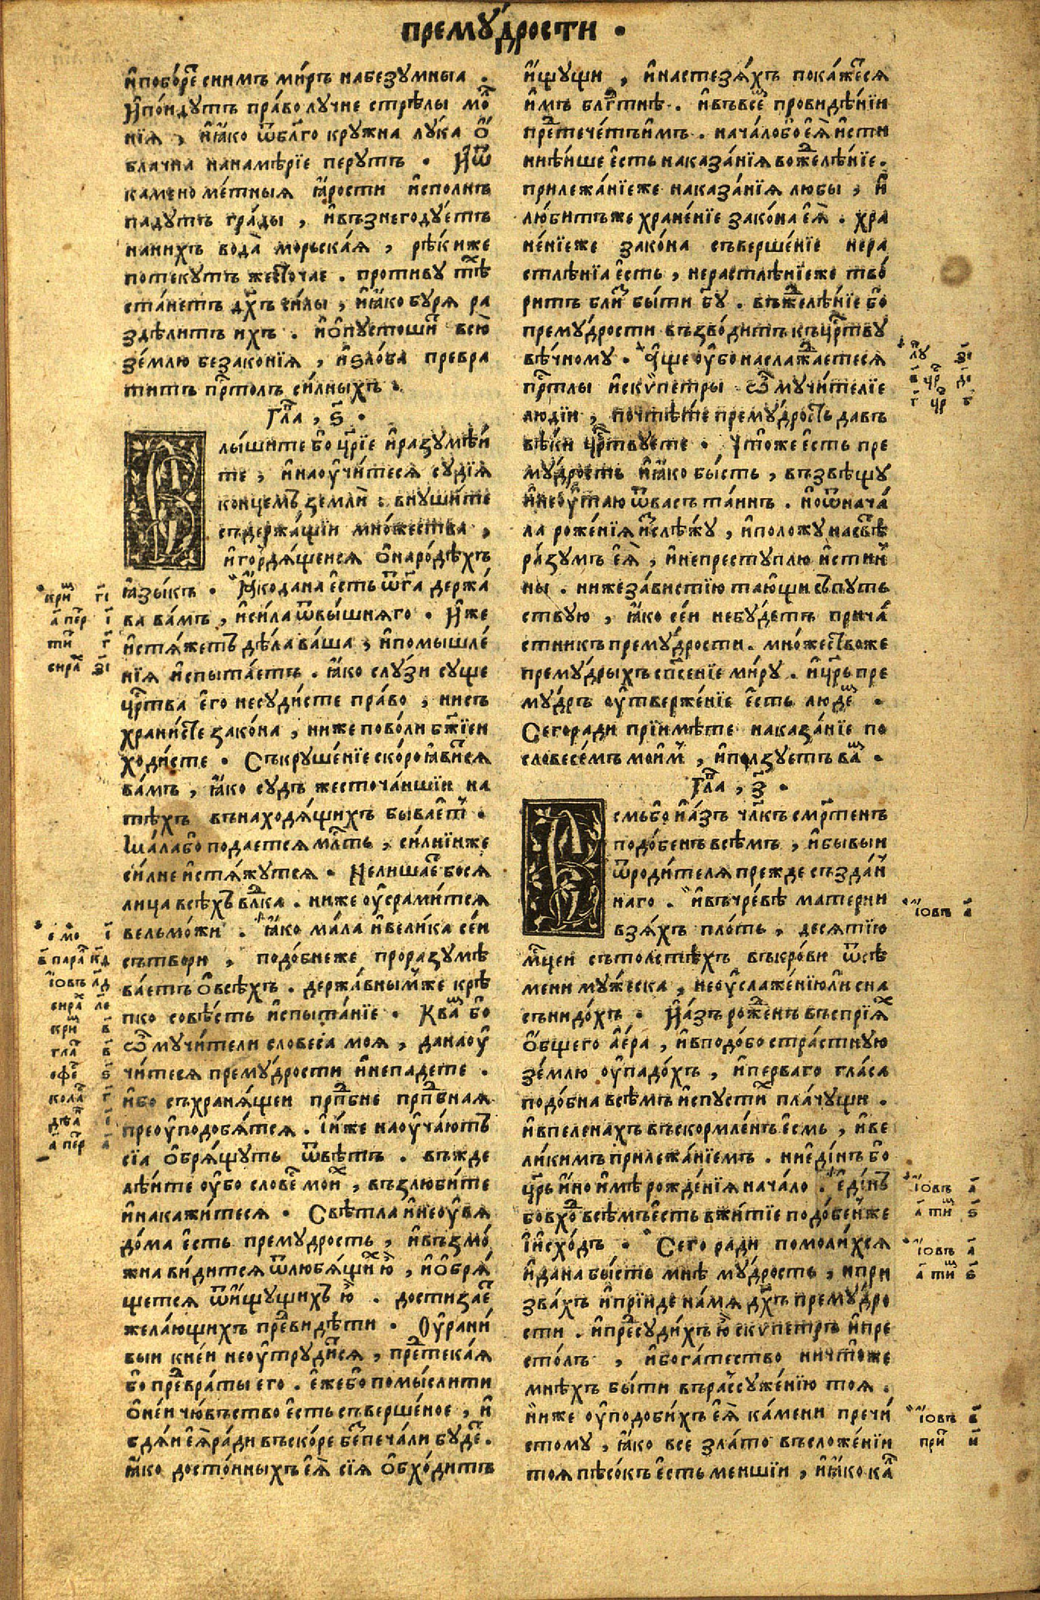 премꙋ́дрости .
и҆побо́рет снимъ ми́ръ набезꙋмныа .
И҆по́идꙋтъ пра́во лꙋчне стрѣлы мо́л
нїѧ , и҆ꙗ҆́ко ѿ бл҃го крꙋжна лꙋка о҆́
блачна нанамѣ́рїе перꙋтъ . И҆ѿ
камено ме́тныѧ ꙗ҆́рости и҆спо́лнь
падꙋтъ гра́ды , и҆възнегодꙋетъ
наниⷯхъ вода̀ морьска́ѧ , рѣ́киже
потекꙋтъ жесточа́е . противꙋ тѣⷯ
ста́нетъ дх҃ъ си́лы , и҆ꙗ҆́ко бꙋрѧ ра
здѣ́литъ ихъ . и҆ѻ҆пꙋстоши́т всю̀
зе́млю безако́нїѧ , и҆ѕло́ба превра
титъ прⷭ҇толъ си́лныхъ .
Гла҃ , ѕ҃ .
Слы́шите бо цр҃їе и҆разꙋмѣ́и
те , и҆наоу҆чи́тесѧ сꙋдїѧ
конце́мъ земли̇ . внꙋши́те
съдержа́щїи мно́жества ,
и҆гордѧ́щеисѧ ѻ҆наро́дѣхъ
ꙗ҆зы́къ . Ꙗ҆́кодана́ е҆сть ѿгⷭ҇а держа́
ва ва́мъ , и҆си́ла ѿвы́шнѧго . И҆́же
и҆стѧ́жетъ дѣ́ла ва́ша , и҆помышле́
нїѧ и҆спыта́етъ . ꙗ҆́ко слꙋзи сꙋще
црⷭ҇тва е҆го̀ несꙋди́сте пра́во , нисъ
храни́сте зако́на , ниже пово́ли бж҃їеи
ходи́сте . Съкрꙋше́нїе ско́ро ꙗ҆ви́сѧ
ва́мъ , ꙗ҆́ко сꙋдъ жесточа́ишїи на
тѣ́хъ внаходѧ́щихъ быва́етъ .
Ма́лабо пода́етсѧ млⷭ҇ть , си́лнїиже
си́лне и҆стѧ́жꙋтсѧ . Нелиша́ет босѧ
лица̀ всѣ́хъ влⷣка . ниже оу҆срами́тсѧ
вельмо́жи . ꙗ҆́ко ма́ла и҆вели́ка се́и
сътвори , подо́бнеже проразꙋмѣ
ва́етъ ѻ҆всѣ́хъ . держа́внымже крѣ́
пко совѣ́сть и҆спыта́нїе . Квамⷨ бо̀
ѽ мꙋчители словеса̀ моѧ̀ , данаоу҆
чи́тесѧ премꙋ́дрости и҆непаде́те .
и҆бо съхранѧ́щеи прⷣпбне прⷣпбнаѧ
преоу҆подо́бѧтсѧ . І҆и҆́же наоу҆ча́ютъ
сїа̀ ѻ҆брѧ́щꙋтъ ѿвѣ́тъ . въжде
лѣ́ите оу҆́бо слове́м мои́м , възлюби́те
и҆накажи́тесѧ . Свѣ́тла и҆неоу҆вѧ
до́ма е҆сть премꙋ́дрость , и҆възмо́
жна ви́дитсѧ ѿлюбѧ́щих ю҆̀ , и҆ѻ҆брѧ́
щетсѧ ѿи҆́щꙋщихъ ю҆̀ . достиза́ет
жела́ющихъ превиⷣдѣ́ти . Оу҆́рани
выи кне́и неоу҆трꙋди́тсѧ , претека́ѧ
бо преврⷣаты е҆го . е҆́жебо помы́слити
ѻ҆не́и чю́въство е҆́сть съверше́ное , и҆̀
бдѧ́и еѧ҆̀ра́ди въско́ре беспеча́ли бꙋ́дет .
ꙗ҆́ко досто́иныхъ е҆ѧ̀ сїѧ ѻ҆бхо́дитъ
и҆́щꙋщи , и҆настезѧ́хъ пока́жетсѧ
и҆̀мъ блгⷣтнѣ . и҆въвсе́м провидѣ́нїи
прⷣетече́тъи҆мъ . нача́лобо е҆ѧ̀ и҆́сти
ннѣ́ише е҆сть наказа́нїѧ вожделѣ́нїе .
прилежа́нїеже наказа́нїѧ любы̀ , и҆̀
лю́битъже хране́нїе зако́на е҆ѧ̀ . хра
не́нїеже зако́на съверше́нїе нера
стлѣ́нїа е҆сть , нерастлѣ́нїеже тво́
ритъ близ бы́ти бг҃ꙋ . въжделѣ́нїе бо
премꙋ́дрости възво́дитъ къцрⷭ҇твꙋ
вѣ́чномꙋ . А҆́ще оу҆́бо наслажⷣаетесѧ
прⷭ҇тлы и҆скѵ́петры ѽ мꙋчителїе
люді́и , почти́те премꙋ́дрость давъ
вѣ́ки црⷭ҇твꙋете . Что́же е҆́сть пре
мꙋ́дрость и҆ꙗ҆́ко бы́сть , възвѣщꙋ
и҆неоу҆таю ѿва́съ та́инъ . но҆ѿнача́
ла рожде́нїѧ и҆слѣ́жꙋ , и҆положꙋ насвѣ́т
ра́зꙋмъ е҆ѧ̀ , и҆непрестꙋплю и҆́стин
ны . нижеза́вистїю та́ющи съпꙋть
ствꙋю , ꙗ҆́ко се́и небꙋ́детъ прича́
стникъ премꙋ́дрости . мно́жествоже
премꙋ́дрыхъ спⷭ҇се́нїе ми́рꙋ . и҆цр҃ь пре
мꙋ́дръ оу҆тверже́нїе е҆́сть лю́демⷨ .
Сегора́ди прїимѣ́те наказа́нїе по
словесе́мъ мои́м , и҆по́лзꙋетъ ва́с .
Гла҃ , з҃ .
Е҆смьбо и҆а҆́зъ чл҃къ сме́ртенъ
подо́бенъ всѣ́мъ , и҆бывы́и
ѿроди́телѧ пре́жде създа́н
наго . и҆въчре́вѣ ма́терни
взѧ́хъ пло́ть , десѧ́тїю
мцⷭ҇еи съто́лстѣхъ въкро́ви ѿсѣ́
мени мꙋ́жеска , неоу҆слажде́нїюли сна
съни́дохъ . И҆а҆́зъ рожⷣе́нъ въсприѧ́х
ѻ҆́бщего ае҆́ра , и҆вподо́бо стра́стнꙋю
зе́млю оу҆падо́хъ , и҆пе́рваго гла́са
подо́бна всѣ́мъ и҆спꙋсти́х пла́чꙋщи .
и҆впелена́хъ въскормле́нъ е҆смь , и҆ве
ли́кимъ прилежа́нїемъ . ниеди́нъ бо
цр҃ь и҆́но и҆мѣ́ рожде́нїѧ нача́ло . е҆ди́нъ
бовхоⷣ всѣ́мъ е҆сть вжитїе подо́беиже
І҆исхо́дъ . Сего ра́ди помоли́хсѧ
и҆дана̀ бы́сть мнѣ̀ мꙋ́дрость , и҆при
зва́хъ и҆прїи́де намѧ̀ дх҃ъ премꙋ́дро
сти . и҆пресꙋди́хъ ю҆̀ скѵ́петръ и҆пре
сто́лъ , и҆бога́тество ничто́же
мнѣ́хъ бы́ти въразсꙋжде́нїю тоѧ .
ни́же оу҆подо́бихъ е҆ѧ̀ ка́мени пречи́
стомꙋ , ꙗ҆́ко все зла́то въсложе́нїи
тоѧ песо́къ е҆сть ме́ншїи , и҆ꙗ҆́ко ка́л